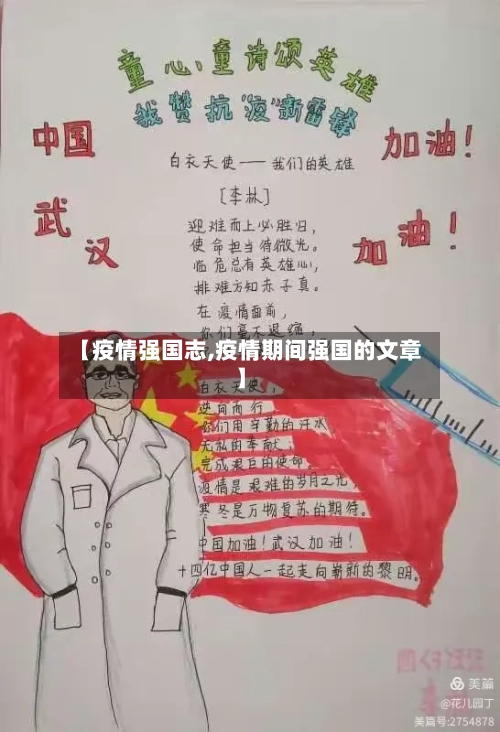 童心童诗颂英雄
我赞抗"疫"新雷锋
中国
加油！
武汉
加油！
白衣天使——我们的英雄
［李林］
迎难而上必胜归，
使命担当待微光。
临危总有英雄心，
排难方知赤子真。
在疫情面前，
你们毫不退缩，
【疫情强国志,疫情期间强国的文章
】
白衣天使，
逆向而行
你们用辛勤的汗水
无私的奉献；
完成艰巨的使命
疫情是艰难的岁月之光
寒冬是万物复苏的期待。
中国加油！武汉加油！
十四亿中国人一起走向崭新的黎明。
美篇
@花儿园丁
美篇号:2754878